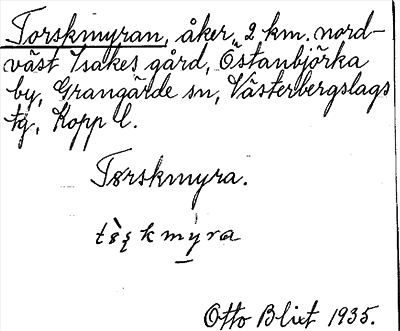 Torskmyran, åker, 2 km. nord-
väst Isakes gård, Östanbjörka
by, Grangärde sn, Västerbergslags
tg, Kopp l.
Tørskmyra.
Otto Blixt 1935.